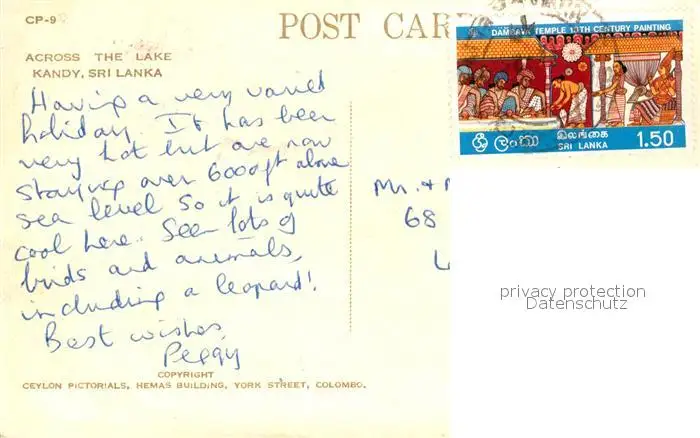 CP-9
POST CAR
ACROSS THE LAKE
KANDY, SRI LANKA
Having a very varied
holiday. It has been
very hot but are now
staying over 6000ft above
sea level so it is quite
cool here. Seen lots of
birds and animals,
including a leopard!
Best wishes,
Peggy
COPYRIGHT
CEYLON PICTORIALS, HEMAS BUILDING, YORK STREET, COLOMBO.
DAMBAVA TEMPLE 18TH CENTURY PAINTING
ශ්‍රී ලංකා இலங்கை
SRI LANKA 1.50
Mr. +
68
privacy protection
Datenschutz